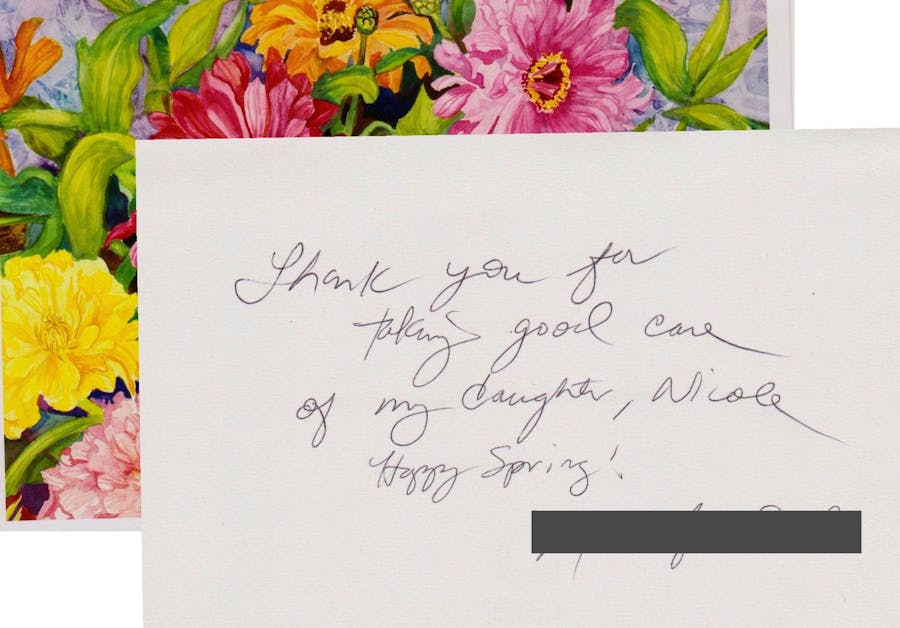 Thank you for
taking good care
of my daughter, Nicole
Happy Spring!